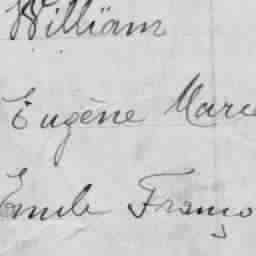 William
Eugène Marce
Emile Franço